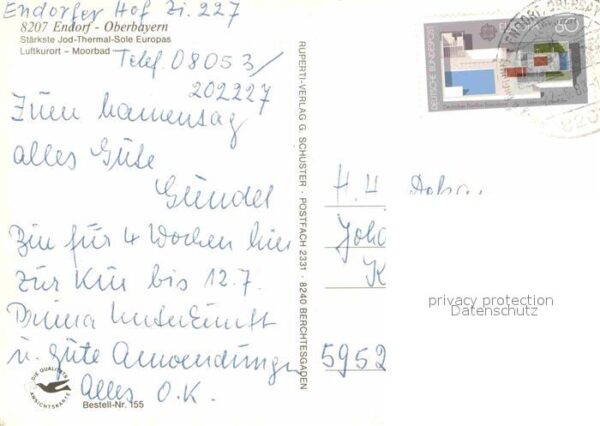 Endorfer Hof Zi. 227
8207 Endorf - Oberbayern
Stärkste Jod-Thermal-Sole Europas
Luftkurort - Moorbad
Telef. 08053/
202227
Zum Namenstag
alles Gute
Gündel
Bin für 4 Wochen hier
zur Kur bis 12.7.
Prima Unterkunft
u. gute Anwendungen
Alles O.K.
DIE QUALITÄTS
ANSICHTSKARTE
Bestell-Nr. 155
RUPERTI-VERLAG G. SCHUSTER · POSTFACH 2331 · 8240 BERCHTESGADEN
DEUTSCHE BUNDESPOST
EUROPA
80
820
H. H.
Joha
K
privacy protection
Datenschutz
5952